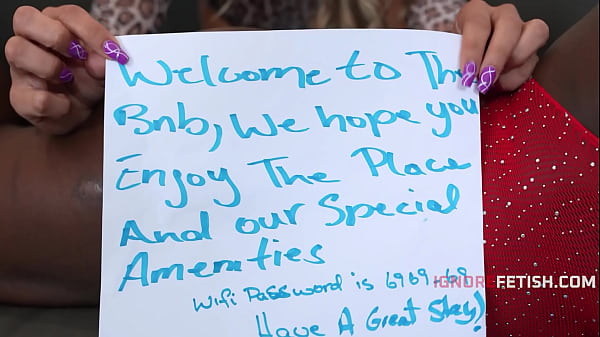 Welcome to The
Bnb, We hope you
Enjoy The Place
And our Special
Amenities
Wifi Password is 6969-69
Have A Great Stay!
IGNOREFETISH.COM